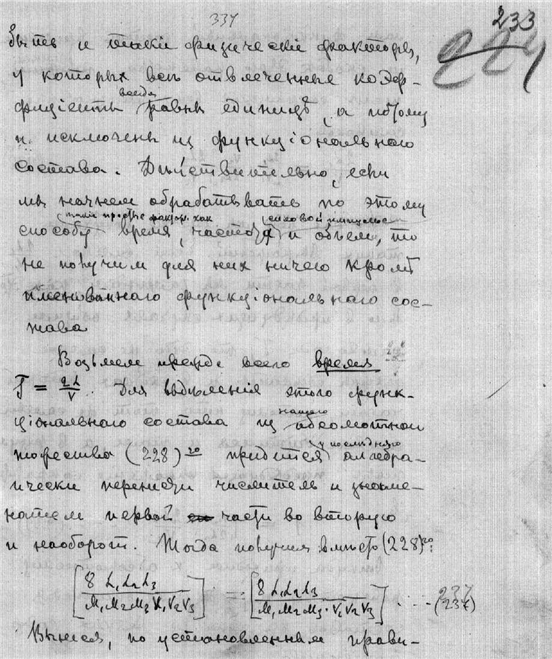 337
233
быть и такiе физическiе факторы,
у которых все отвлеченные коэф-
фицiенты всегда равны единицѣ, а потому
и исключены из функцiональнаго
состава. Дѣйствительно, если
мы начнем обрабатывать по этому
такiе простые факторы как силовой импульс
способу время, частота и объем, то
не получим для них ничего кромѣ
именованнаго функцiональнаго сос-
тава
Возьмем прежде всего время
T = qL/V. Для выдѣленiя этого функ-
цiональнаго состава из нашего абсолютнаго
тожества (228) придется у послѣдняго алгебра-
ически перенести числитель и знаме-
натель первой части во вторую
и наоборот. Тогда получим вмѣсто (228):
[8 L₁L₂L₃ / M₁M₂M₃ V₁V₂V₃] = [8 L₁L₂L₃ / M₁M₂M₃ · V₁V₂V₃] ···· (237)
Вычтя, по установленным прави-